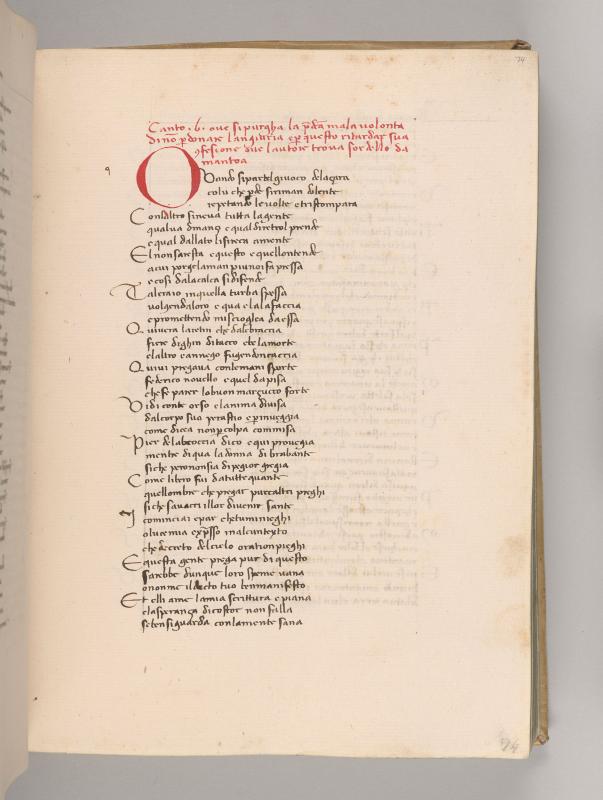 74
Canto .6. oue si purgha la pḋca mala uolonta
di nō ꝑdonare la ngiuria e ꝑ questo ritardar sua
ꝯfesione due lautore troua sordello da
mantoa
Ouando si partel giuoco de la çara
colu che ꝑde si riman dolente
repetando le uolte e tristo mpara
Con laltro sineua tutta la gente
qual ua dinanç e qual diretrol prende
e qual dallato li si reca a mente
El non saresta e questo e quello ntende
a cui porge la man piu noi fa pressa
e cosi da la calca si difende
Tal era io in quella turba spessa
uolgendo loro e qua e la la faccia
e promettendo mi scioglea da essa
Quiuera laretin che da le braccia
fiere di ghin di tacco ebe la morte
e laltro e annego fugendo in caccia
Quiui pregaua con le mani sporte
federico nouello e quel da pisa
che fe parer lo buon marçucco forte
Vidi conte orso e lanima diuisa
dal corpo suo per astio e ꝑ inueggia
come dicea non ꝑ colpa commisa
Pier de la broccia dico e qui prouegia
mentre di qua la donna di brabante
si che pero non sia di pegior gregia
Come libero fui da tutte quante
quellombre che pregar pur caltri preghi
si che sauacci il lor diuenir sante
I cominciai e par che tu mi nieghi
o luce mia expsso in alcun texto
che decreto del cielo oration pieghi
E questa gente prega pur di questo
sarebbe dunque loro speme uana
o non me il decto tuo ben manifesto
Et elli a me la mia scrittura e piana
e la sperança di costor non falla
se ben si guarda con la mente sana
74